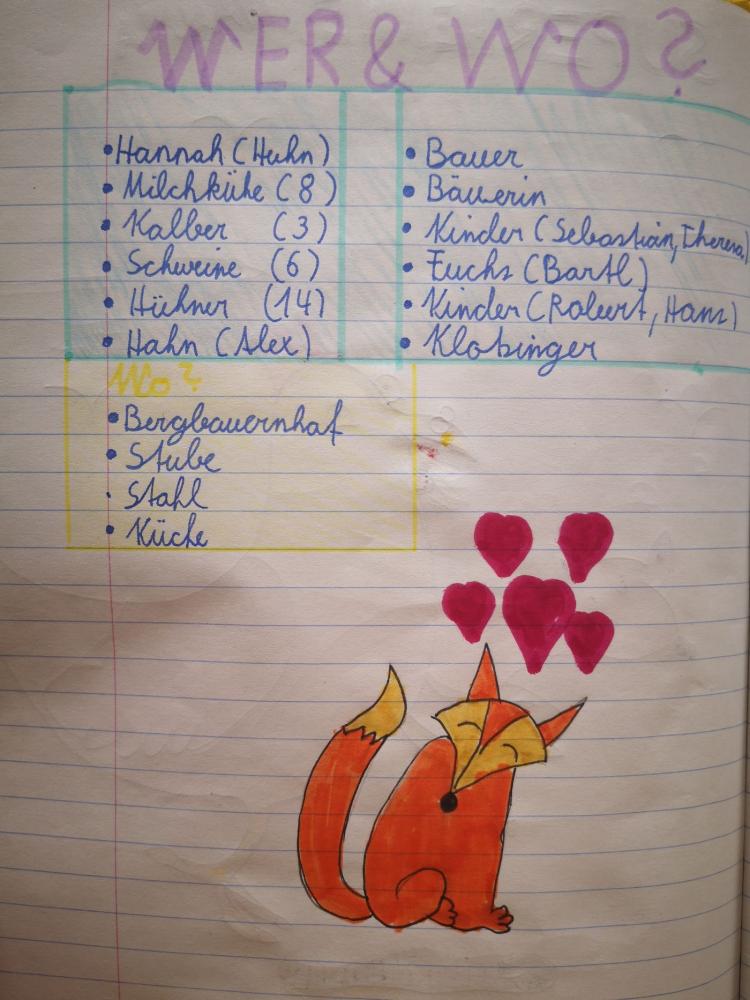 WER & WO?
• Hannah (Huhn)
• Milchkühe (8)
• Kalber (3)
• Schweine (6)
• Hühner (14)
• Hahn (Alex)
• Bauer
• Bäuerin
• Kinder (Sebastian, Theresa)
• Fuchs (Bartl)
• Kinder (Robert, Hans)
• Klobinger
Wo?
• Bergbauernhof
• Stube
• Stahl
• Küche